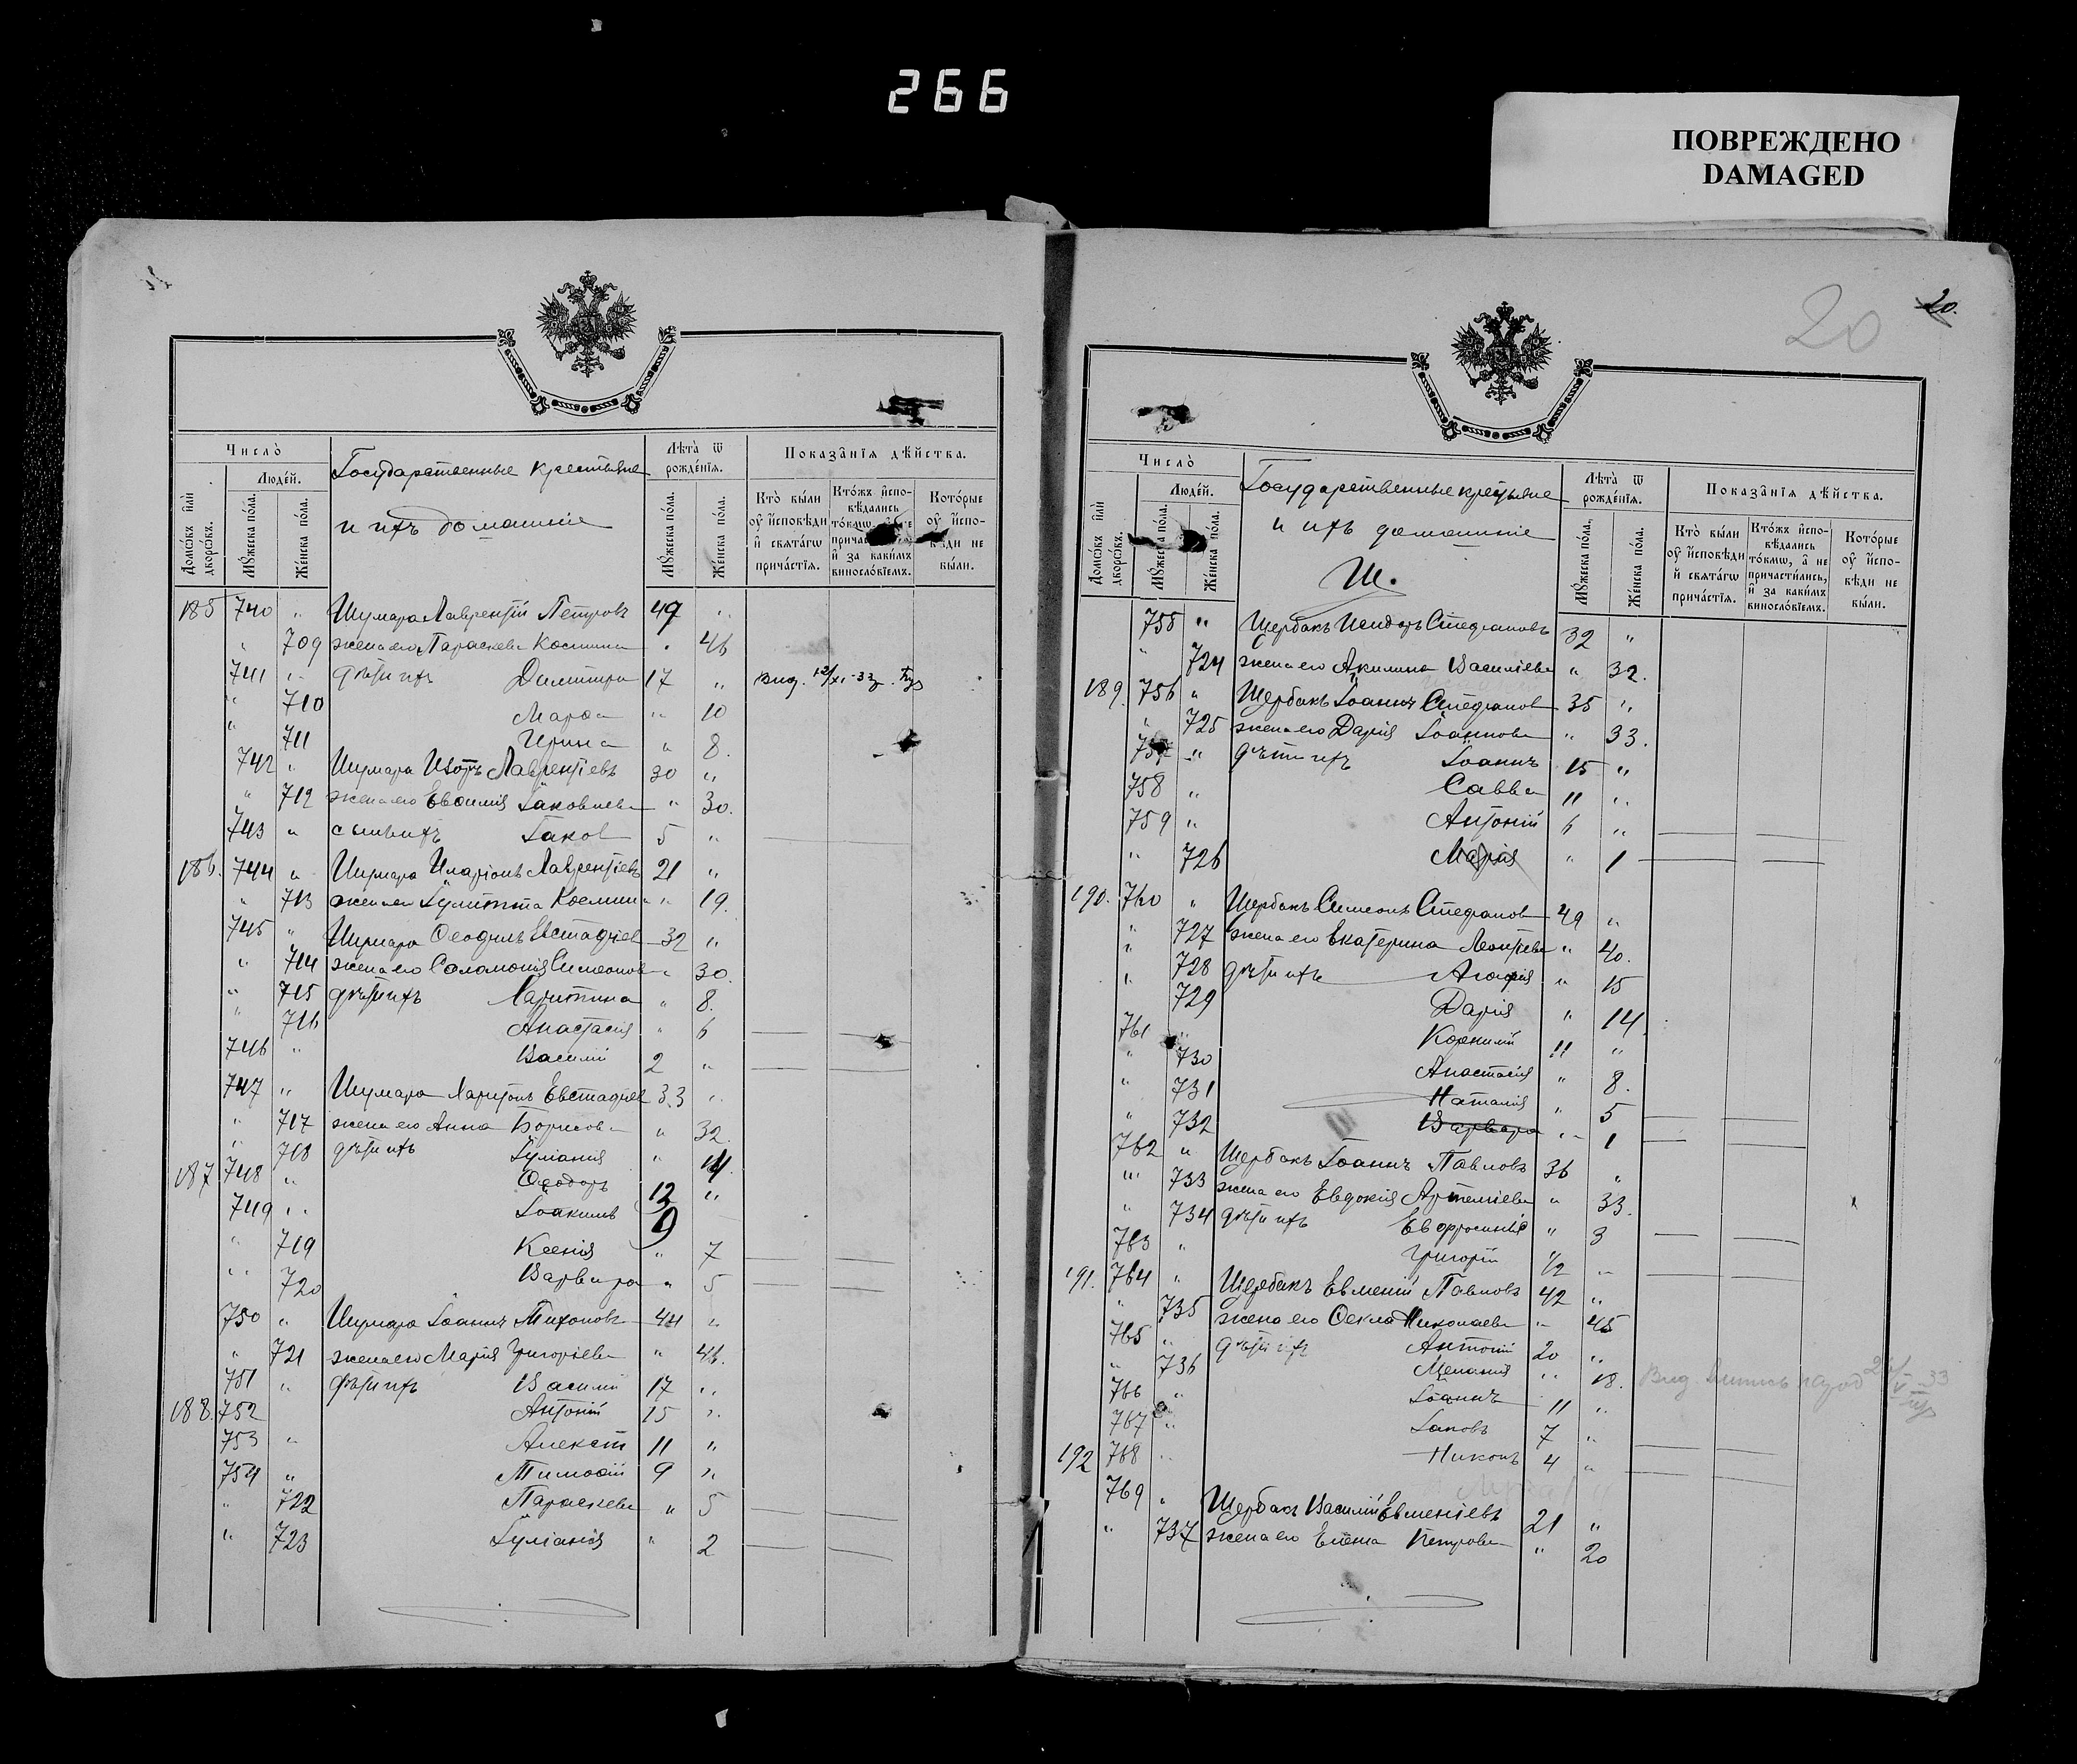 266
ПОВРЕЖДЕНО
DAMAGED
Число̀
Людéй.
Домѡ́въ и҆лѝ дворѡ́въ.
Мꙋ́жеска по́ла.
Же́нска по́ла.
Государственные крестьяне
и ихъ домашніе
Лѣта̀ ѿ рожде́нїѧ.
Мꙋ́жеска по́ла.
Же́нска по́ла.
Показа̑нїѧ дѣ́йства.
Кто̀ бы́ли оу҆ и҆сповѣди и҆ свѧта́гѡ прича́стїѧ.
Кто́жъ и҆спо- вѣдались то́кмѡ, и҆ за каки́мъ винословїемъ.
Кото́рые оу҆ и҆спо- вѣди не бы́ли.
185 740 " Шумара Лаврентій Петровъ 49 "
" 709 жена его Параскева Космина " 46
741 " дѣти ихъ Димитрій 17 " Вид. 12/XI-33г.
" 710 Марѳа " 10
" 711 Ирина " 8.
742 " Шумара Изотъ Лаврентіевъ 30 "
" 712 жена его Евѳимія Іаковлева " 30.
743 " сынъ ихъ Іаковъ 5 "
186. 744 " Шумара Иларіонъ Лаврентіевъ 21 "
" 713 жена его Іулитта Космина " 19.
745 " Шумара Ѳеофилъ Евстафіев 32 "
" 714 жена его Саломонія Симеонова " 30.
" 715 дѣти ихъ Харитина " 8.
" 716 Анастасія " 6
746 " Василій 2 "
747 " Шумара Харитонъ Евстафіев 33 "
" 717 жена его Анна Борисова " 32.
" 718 дѣти ихъ Іуліанія " 14.
187 748 " Ѳеодоръ 12 "
749 " Іоакимъ 9
" 719 Ксенія " 7
" 720 Варвара " 5
750 " Шумара Іоаннъ Тихоновъ 44 "
" 721 жена его Марія Григоріева " 46.
751 " дѣти ихъ Василій 17 "
188. 752 Антоній 15 "
753 " Алексій 11 "
754 " Тимоѳій 9 "
" 722 Параскева " 5
" 723 Іуліанія " 2
20
20.
Число̀
Людéй.
Домѡ́въ и҆лѝ дворѡ́въ.
Мꙋ́жеска по́ла.
Же́нска по́ла.
Государственные крестьяне
и ихъ домашніе
Щ.
Лѣта̀ ѿ рожде́нїѧ.
Мꙋ́жеска по́ла.
Же́нска по́ла.
Показа̑нїѧ дѣ́йства.
Кто̀ бы́ли оу҆ и҆сповѣди и҆ свѧта́гѡ прича́стїѧ.
Кто́жъ и҆спо- вѣдались то́кмѡ, а҆ не причасти́лись, и҆ за каки́мъ винословїемъ.
Кото́рые оу҆ и҆спо- вѣди не бы́ли.
755 " Щербакъ Исидоръ Стефановъ 32 "
" 724 жена его Акилина Василіева " 32.
189. 756 " Щербакъ Іоаннъ Стефанов 35 "
" 725 жена его Дарія Іоаннова " 33.
757 " дѣти ихъ Іоаннъ 15 "
758 " Савва 11 "
759 " Антоній 6 "
" 726 Марія " 1
190. 760 " Щербакъ Симеонъ Стефанов 49 "
" 727 жена его Екатерина Леонтіева " 40.
" 728 дѣти ихъ Агафія " 15
" 729 Дарія " 14.
761 " Корнилій 11 "
" 730 Анастасія " 8.
" 731 Наталія " 5
" 732 Варвара " 1
762 " Щербакъ Іоаннъ Павловъ 36 "
" 733 жена его Евдокія Артеміева " 33.
" 734 дѣти ихъ Евфросинія " 3
763 " Григорій 1/2 "
191. 764 " Щербакъ Евменій Павловъ 42 "
" 735 жена его Ѳекла Николаева " 45
765 " дѣти ихъ Антоній 20 "
" 736 Меланія " 18.
766 " Іоаннъ 11 "
767 " Іаковъ 7 "
192 768 " Никонъ 4 "
769 " Щербакъ Василій Евменіевъ 21 "
" 737 жена его Елена Петрова " 20